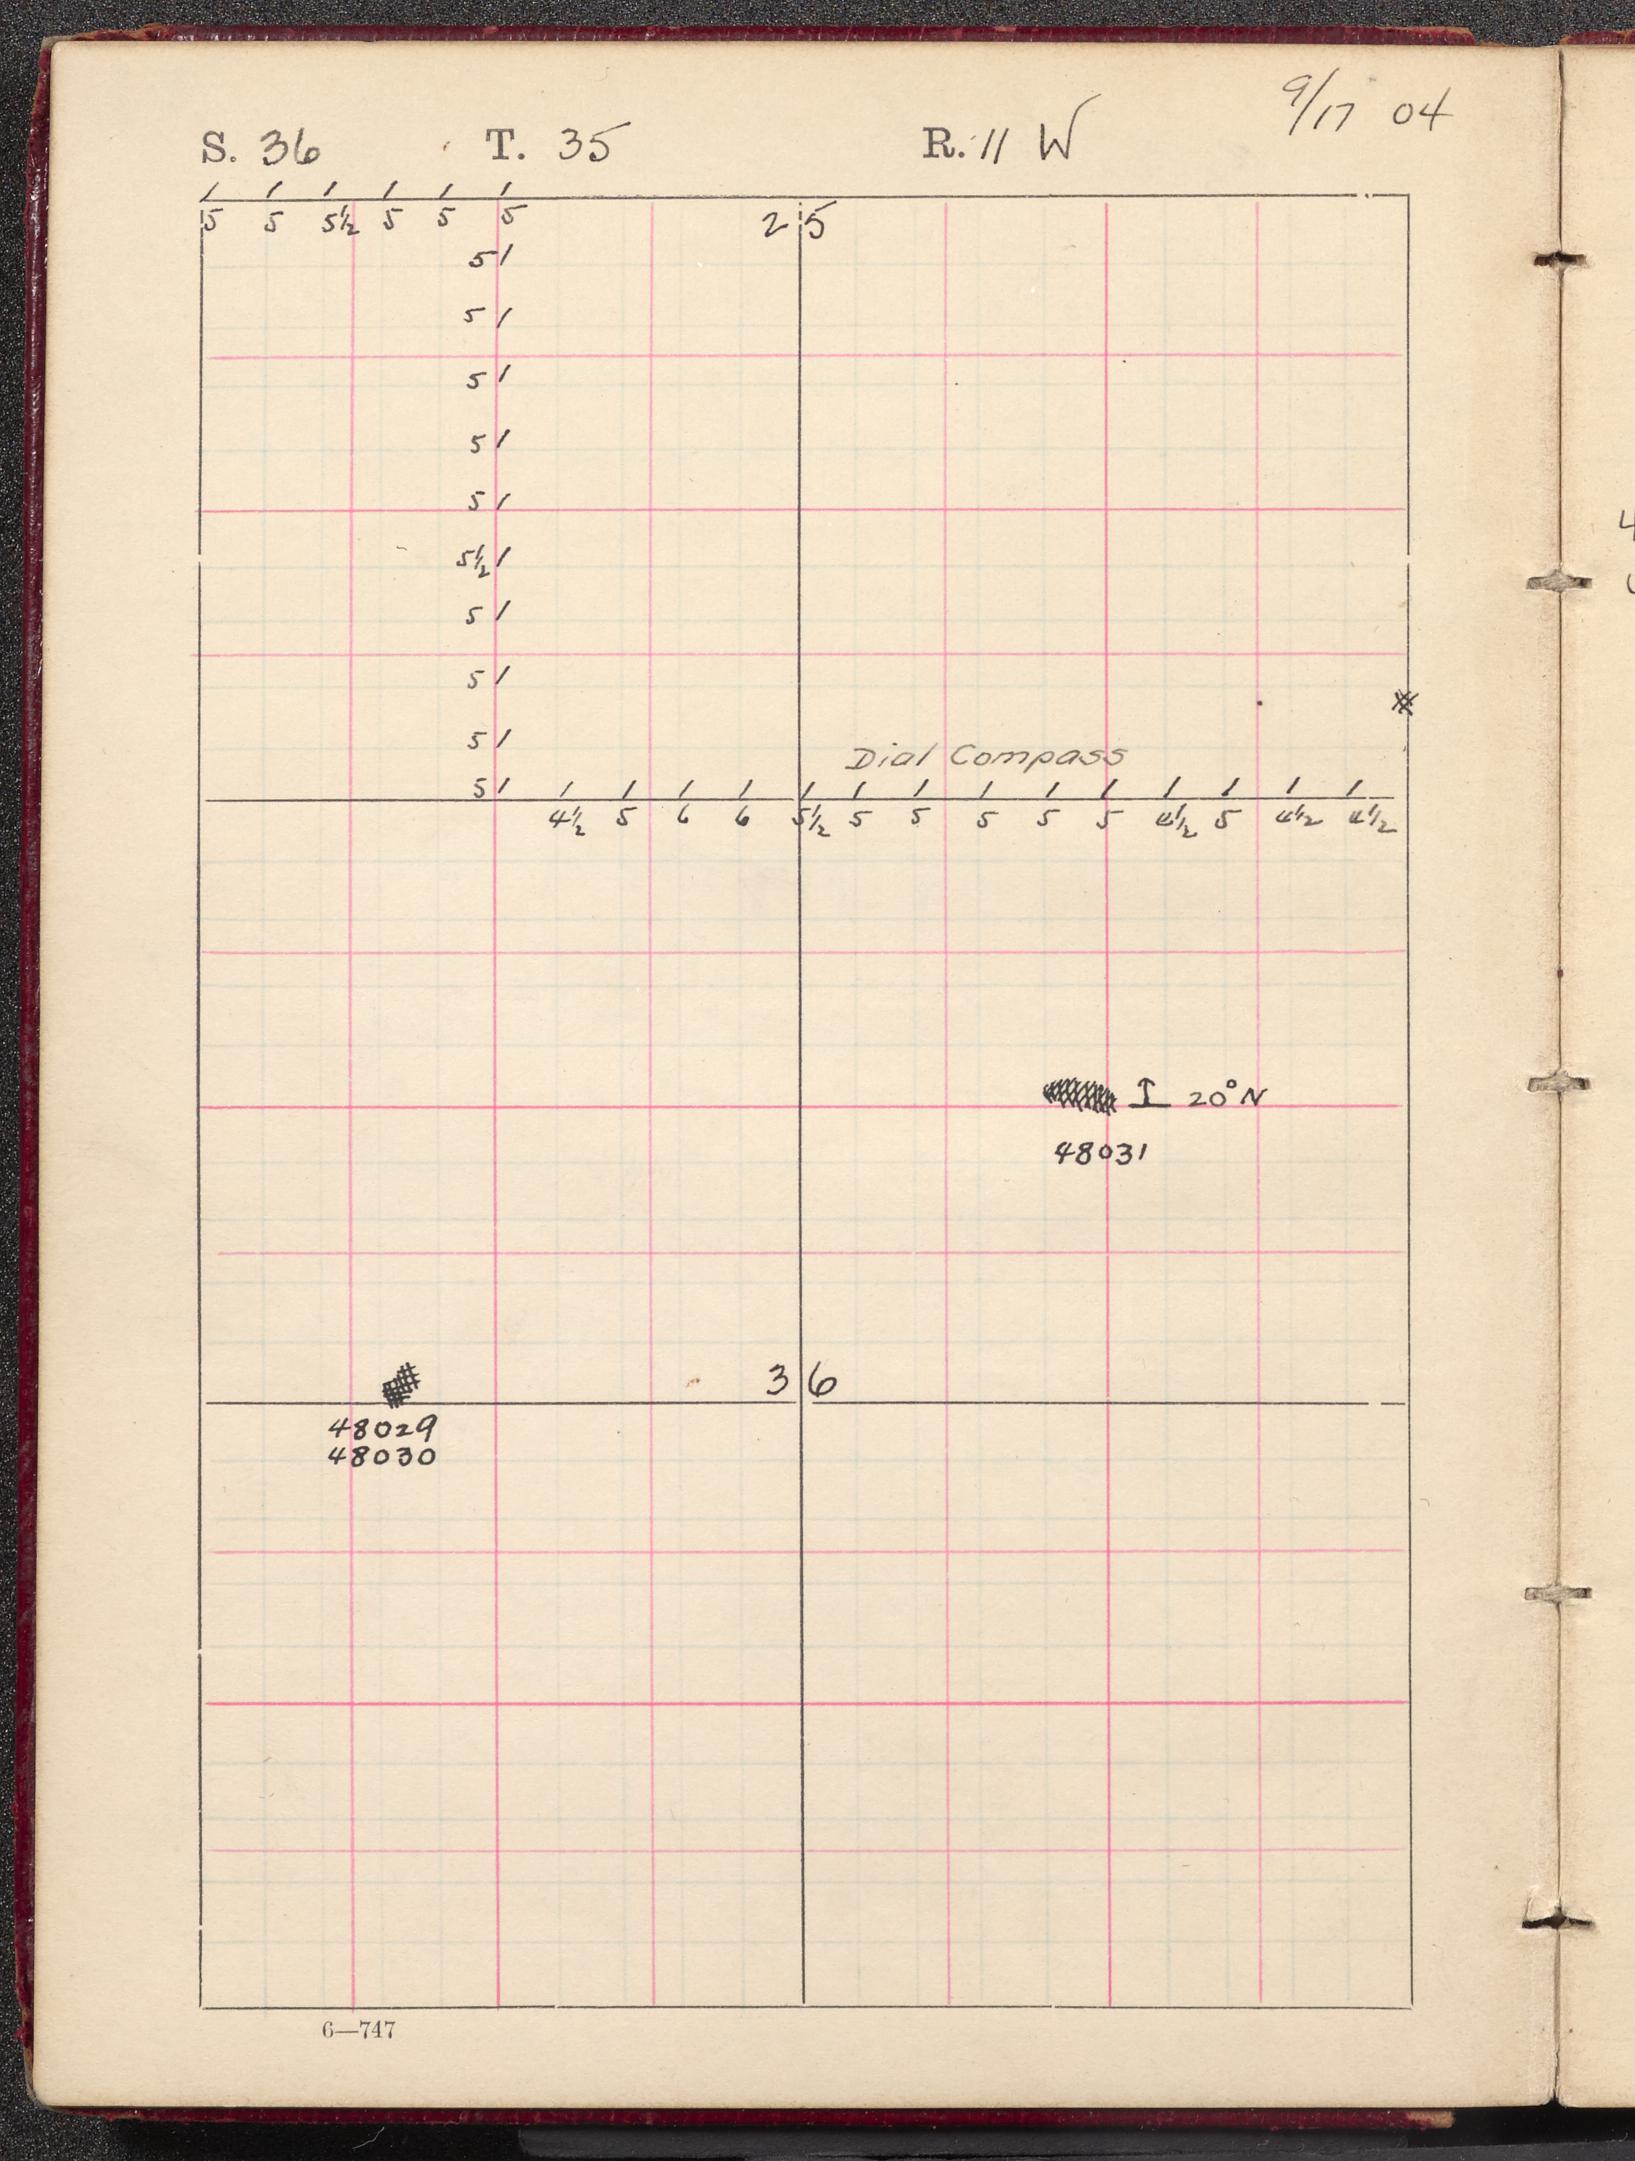 9/17 04
S. 36 T. 35 R. 11 W
5 5 5½ 5 5 5
25
5
5
5
5
5
5½
5
5
5
Dial Compass
5
4½ 5 6 6 5½ 5 5 5 5 5 4½ 5 4½ 4½
20° N
48031
36
48029
48030
6—747